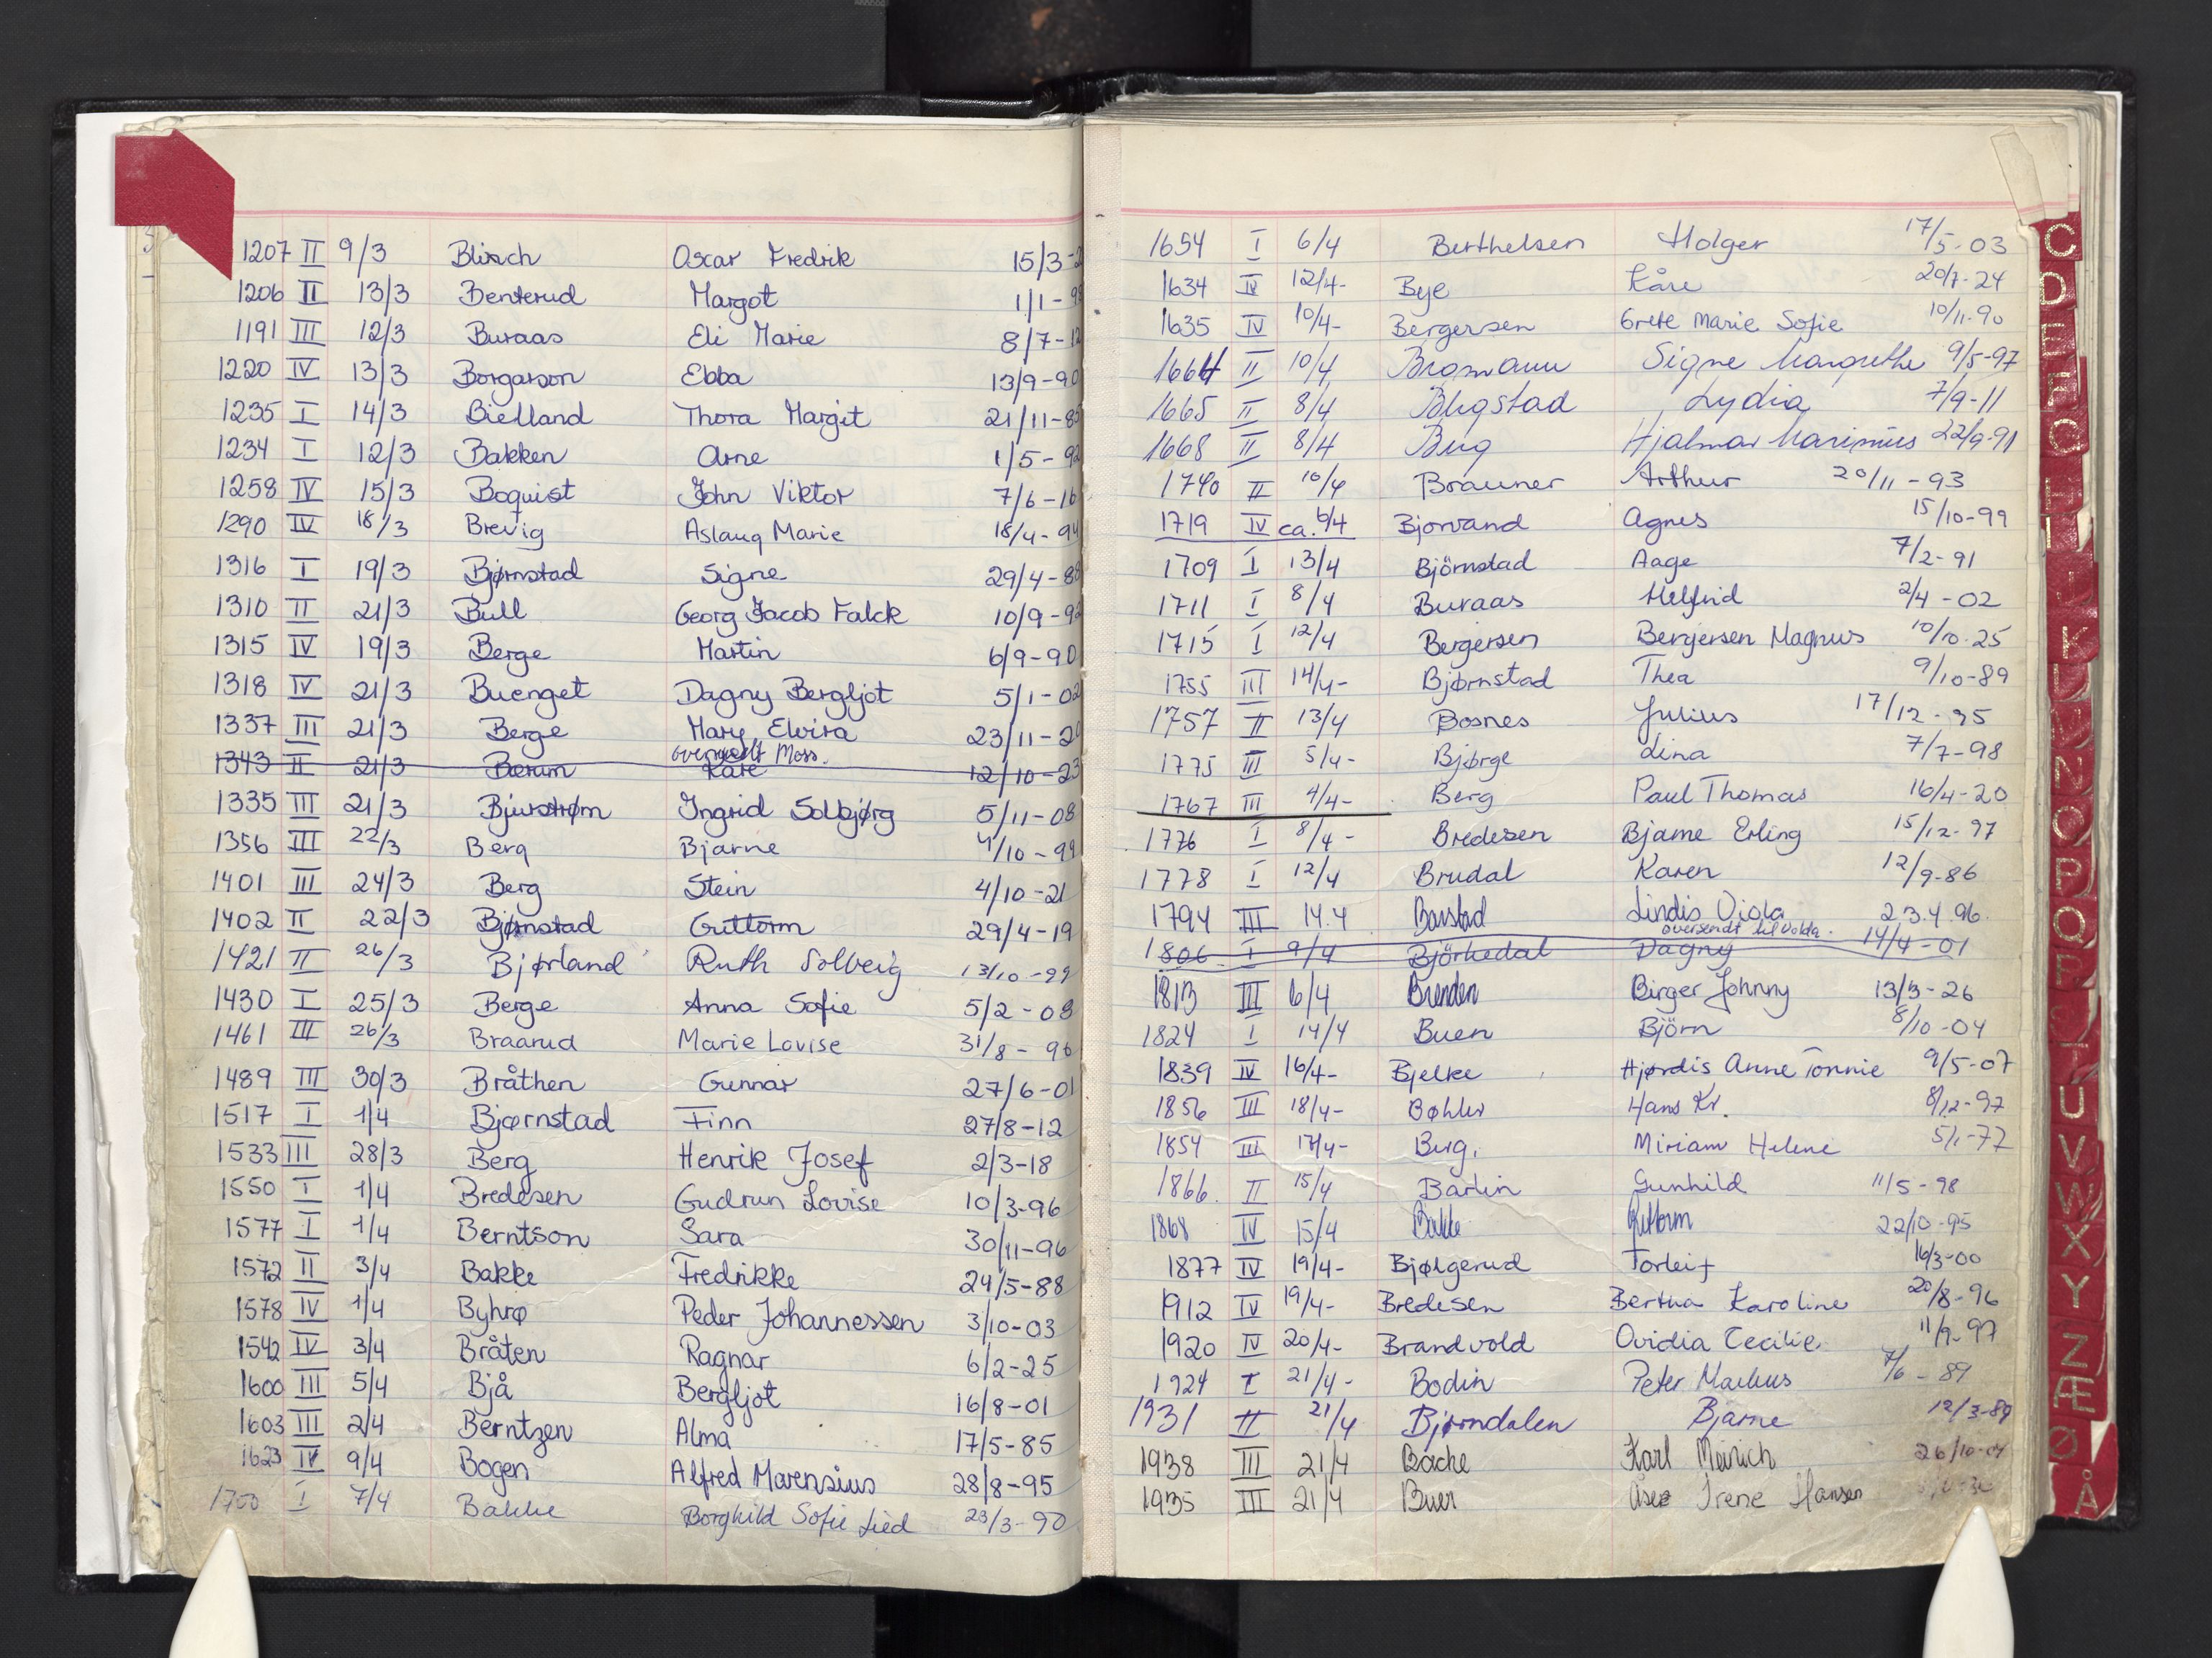 1207 II 9/3 Blixsch Oscar Fredrik 15/3-2
1206 II 13/3 Benterud Margot 1/1-98
1191 III 12/3 Buraas Eli Marie 8/7-12
1220 IV 13/3 Borgarson Ebba 13/9-90
1235 I 14/3 Bielland Thora Margit 21/11-85
1234 I 12/3 Bakken Arne 1/5-92
1258 IV 15/3 Boquist John Viktor 7/6-16
1290 IV 18/3 Brevig Aslaug Marie 18/4-94
1316 I 19/3 Bjørnstad Signe 29/4-88
1310 II 21/3 Bull Georg Jacob Falck 10/9-92
1315 IV 19/3 Berge Martin 6/9-90
1318 IV 21/3 Buenget Dagny Bergljot 5/1-02
1337 III 21/3 Berge Mary Elvira 23/11-20
oversendt Moss.
1343 II 21/3 Bærum Kåre 12/10-23
1335 III 21/3 Bjurstrøm Ingrid Solbjørg 5/11-08
1356 III 22/3 Berg Bjarne 4/10-99
1401 III 24/3 Berg Stein 4/10-21
1402 II 22/3 Bjørnstad Guttorm 29/4-19
1421 II 26/3 Bjørland Ruth Solveig 13/10-99
1430 I 25/3 Berge Anna Sofie 5/2-08
1461 III 26/3 Braarud Marie Lovise 31/8-96
1489 III 30/3 Bråthen Gunnar 27/6-01
1517 I 1/4 Bjørnstad Finn 27/8-12
1533 III 28/3 Berg Henrik Josef 2/3-18
1550 I 1/4 Bredesen Gudrun Lovise 10/3-96
1577 I 1/4 Berntson Sara 30/11-96
1572 II 3/4 Bakke Fredrikke 24/5-88
1578 IV 1/4 Byhrø Peder Johannessen 3/10-03
1542 IV 3/4 Bråten Ragnar 6/2-25
1600 III 5/4 Bjå Bergljot 16/8-01
1603 III 2/4 Berntzen Alma 17/5-85
1623 IV 9/4 Bogen Alfred Marensius 28/8-95
1700 I 7/4 Bakke Borghild Sofie Lied 23/3-90
1654 I 6/4 Berthelsen Holger 17/5-03
1634 IV 12/4- Bye Kåre 20/7-24
1635 IV 10/4- Bergersen Grete Marie Sofie 10/11-90
1664 II 10/4 Bromann Signe Margrethe 9/5-97
1665 II 8/4 Bergstad Lydia 7/9-11
1668 II 8/4 Berg Hjalmar Marinius 22/9-91
1740 II 10/4 Brauner Arthur 20/11-93
1719 IV ca. 6/4 Bjorvand Agnes 15/10-99
1709 I 13/4 Björnstad Aage 7/2-91
1711 I 8/4 Buraas Helfrid 2/4-02
1715 I 12/4 Bergersen Bergersen Magnus 10/10-25
1755 III 14/4- Bjørnstad Thea 9/10-89
1757 II 13/4 Bosnes Julius 17/12-95
1775 III 5/4- Bjørge Lina 7/7-98
1767 III 4/4- Berg Paul Thomas 16/4-20
1776 I 8/4- Bredesen Bjarne Erling 15/12-97
1778 I 12/4 Brudal Karen 12/9-86
1794 III 14.4 Barstad Lindis Viola 23.4.96.
oversendt til Volda.
1806 I 9/4 Björkedal Dagny 14/4-01
1813 III 6/4 Brenden Birger Johnny 13/3-26
1824 I 14/4 Buen Björn 8/10-04
1839 IV 16/4- Bjelke Hjørdis Anne Tonnie 9/5-07
1856 III 18/4- Bøhler Hans Kr. 8/12-97
1854 III 17/4- Berg. Miriam Helene 5/1-72
1866. II 15/4 Bartin Gunhild 11/5-98
1868 IV 15/4 Bakke Guttorm 22/10-95
1877 IV 19/4- Bjølgerud Torleif 16/3-00
1912 IV 19/4- Bredesen Bertha Karoline 20/8-96
1920 IV 20/4- Brandvold Ovidia Cecilie. 11/9-97
1924 I 21/4- Bodin Peter Markus 7/6-89
1931 II 21/4 Bjørndalen Bjarne 12/3-89
1938 III 21/4 Backe Karl Meinich 26/10-04
1935 III 21/4 Buer Åse Irene Hansen
C
D
E
F
G
H
I
J
K
L
M
N
O
P
Q
R
S
T
U
V
W
X
Y
Z
Æ
Ø
Å